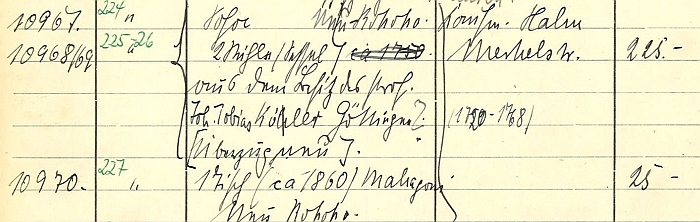 10967. 224 " Sofa Neu-Rokoko. Kaufm. Hahn
10968/69 225-26 2 Stühle (Sessel) ca 1750. Merkelstr. 225.-
aus dem Besitz des Prof.
Joh. Tobias Köhler Göttingen. (1720-1768)
[Überzug neu].
10970. 227 " 1 Tisch (ca 1860) Mahagoni 25-
Neu Rokoko.